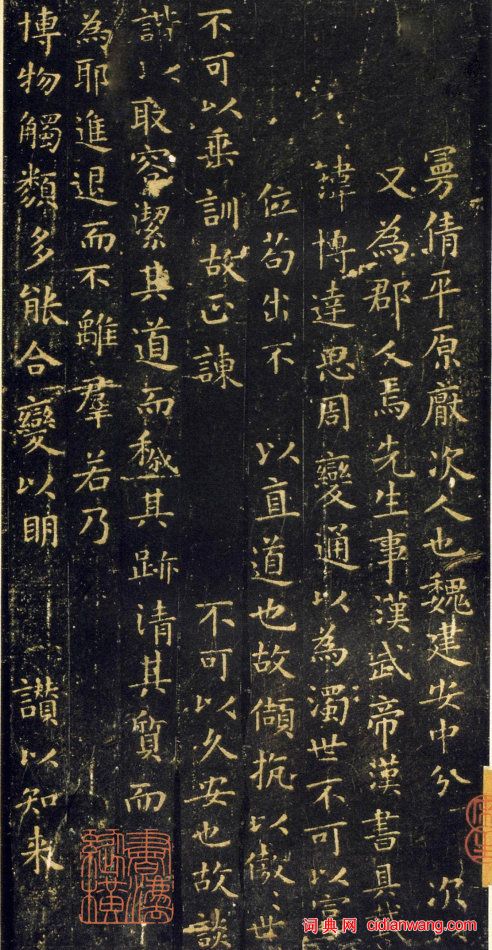 曼倩平原厭次人也魏建安中分 次
又為郡人焉先生事漢武帝漢書具載
瑋博達思周變通以為濁世不可以富
位苟出不 以直道也故傾抗以傲世
不可以垂訓故正諫 不可以久安也故談
諧以取容潔其道而穢其跡清其質而
為耶進退而不離羣若乃
博物觸類多能合變以明 讃以知来
词典网 cidianwang.com